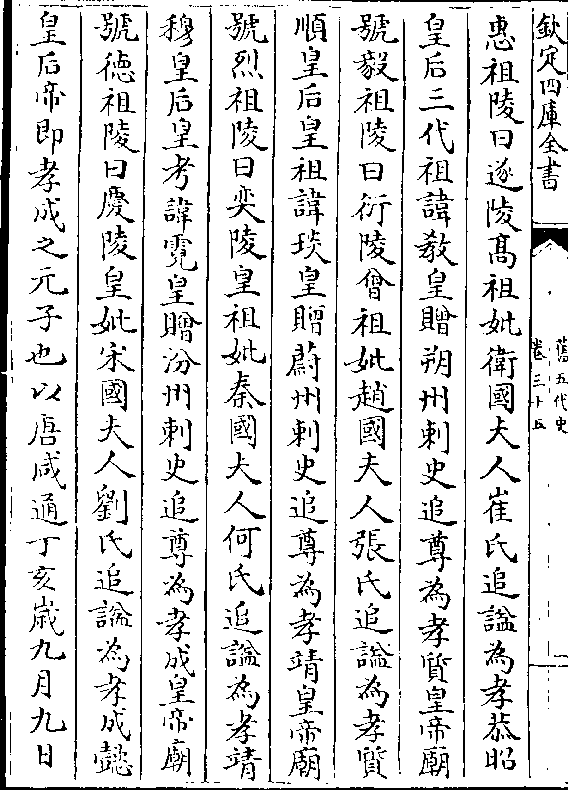 欽定四庫全書
舊五代史
卷三十五
惠祖陵曰遂陵高祖妣衛國夫人崔氏追謚為孝恭昭
皇后三代祖諱敎皇贈朔州刺史追尊為孝質皇帝廟
號毅祖陵曰衍陵曾祖妣趙國夫人張氏追謚為孝質
順皇后皇祖諱琰皇贈蔚州刺史追尊為孝靖皇帝廟
號烈祖陵曰奕陵皇祖妣秦國夫人何氏追謚為孝靖
穆皇后皇考諱霓皇贈汾州刺史追尊為孝成皇帝廟
號德祖陵曰慶陵皇妣宋國夫人劉氏追謚為孝成懿
皇后帝即孝成之元子也以唐咸通丁亥歳九月九日